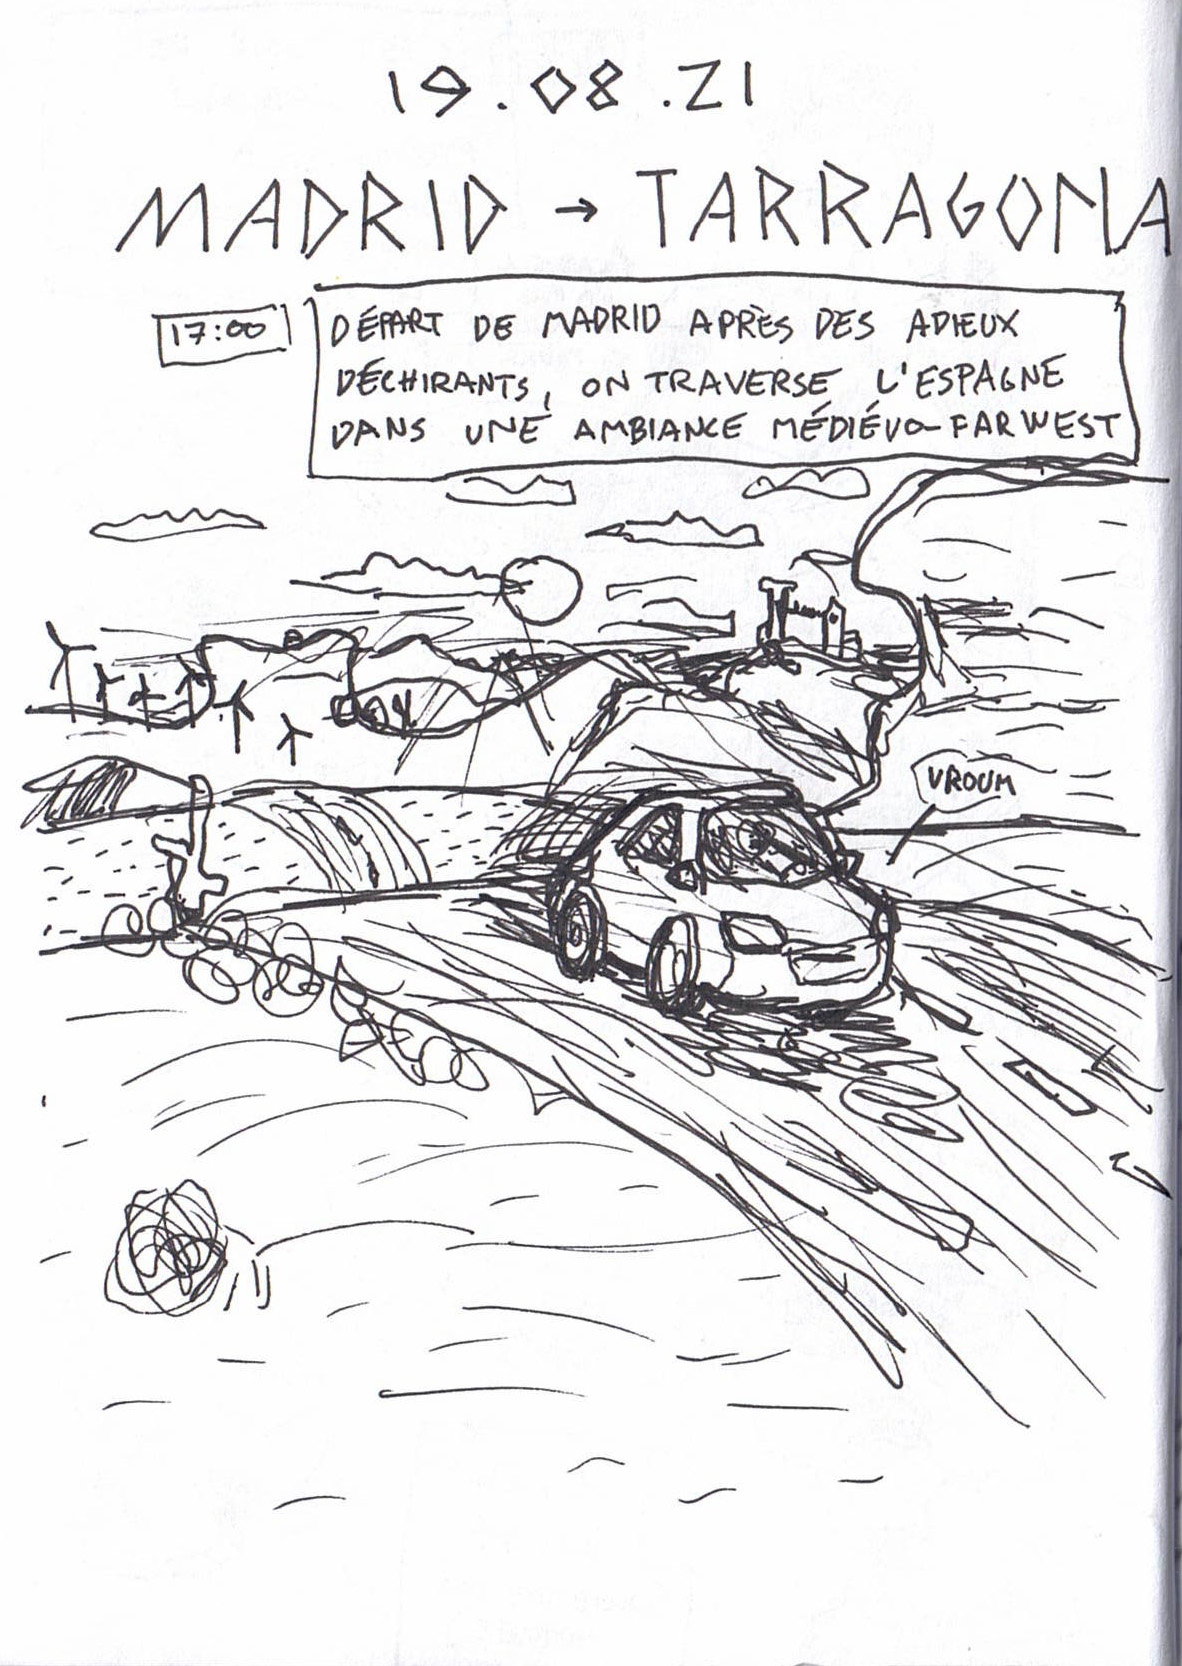 19.08.21
MADRID → TARRAGONA
17:00
DÉPART DE MADRID APRÈS DES ADIEUX
DÉCHIRANTS, ON TRAVERSE L'ESPAGNE
DANS UNE AMBIANCE MÉDIÉVO-FARWEST
VROUM